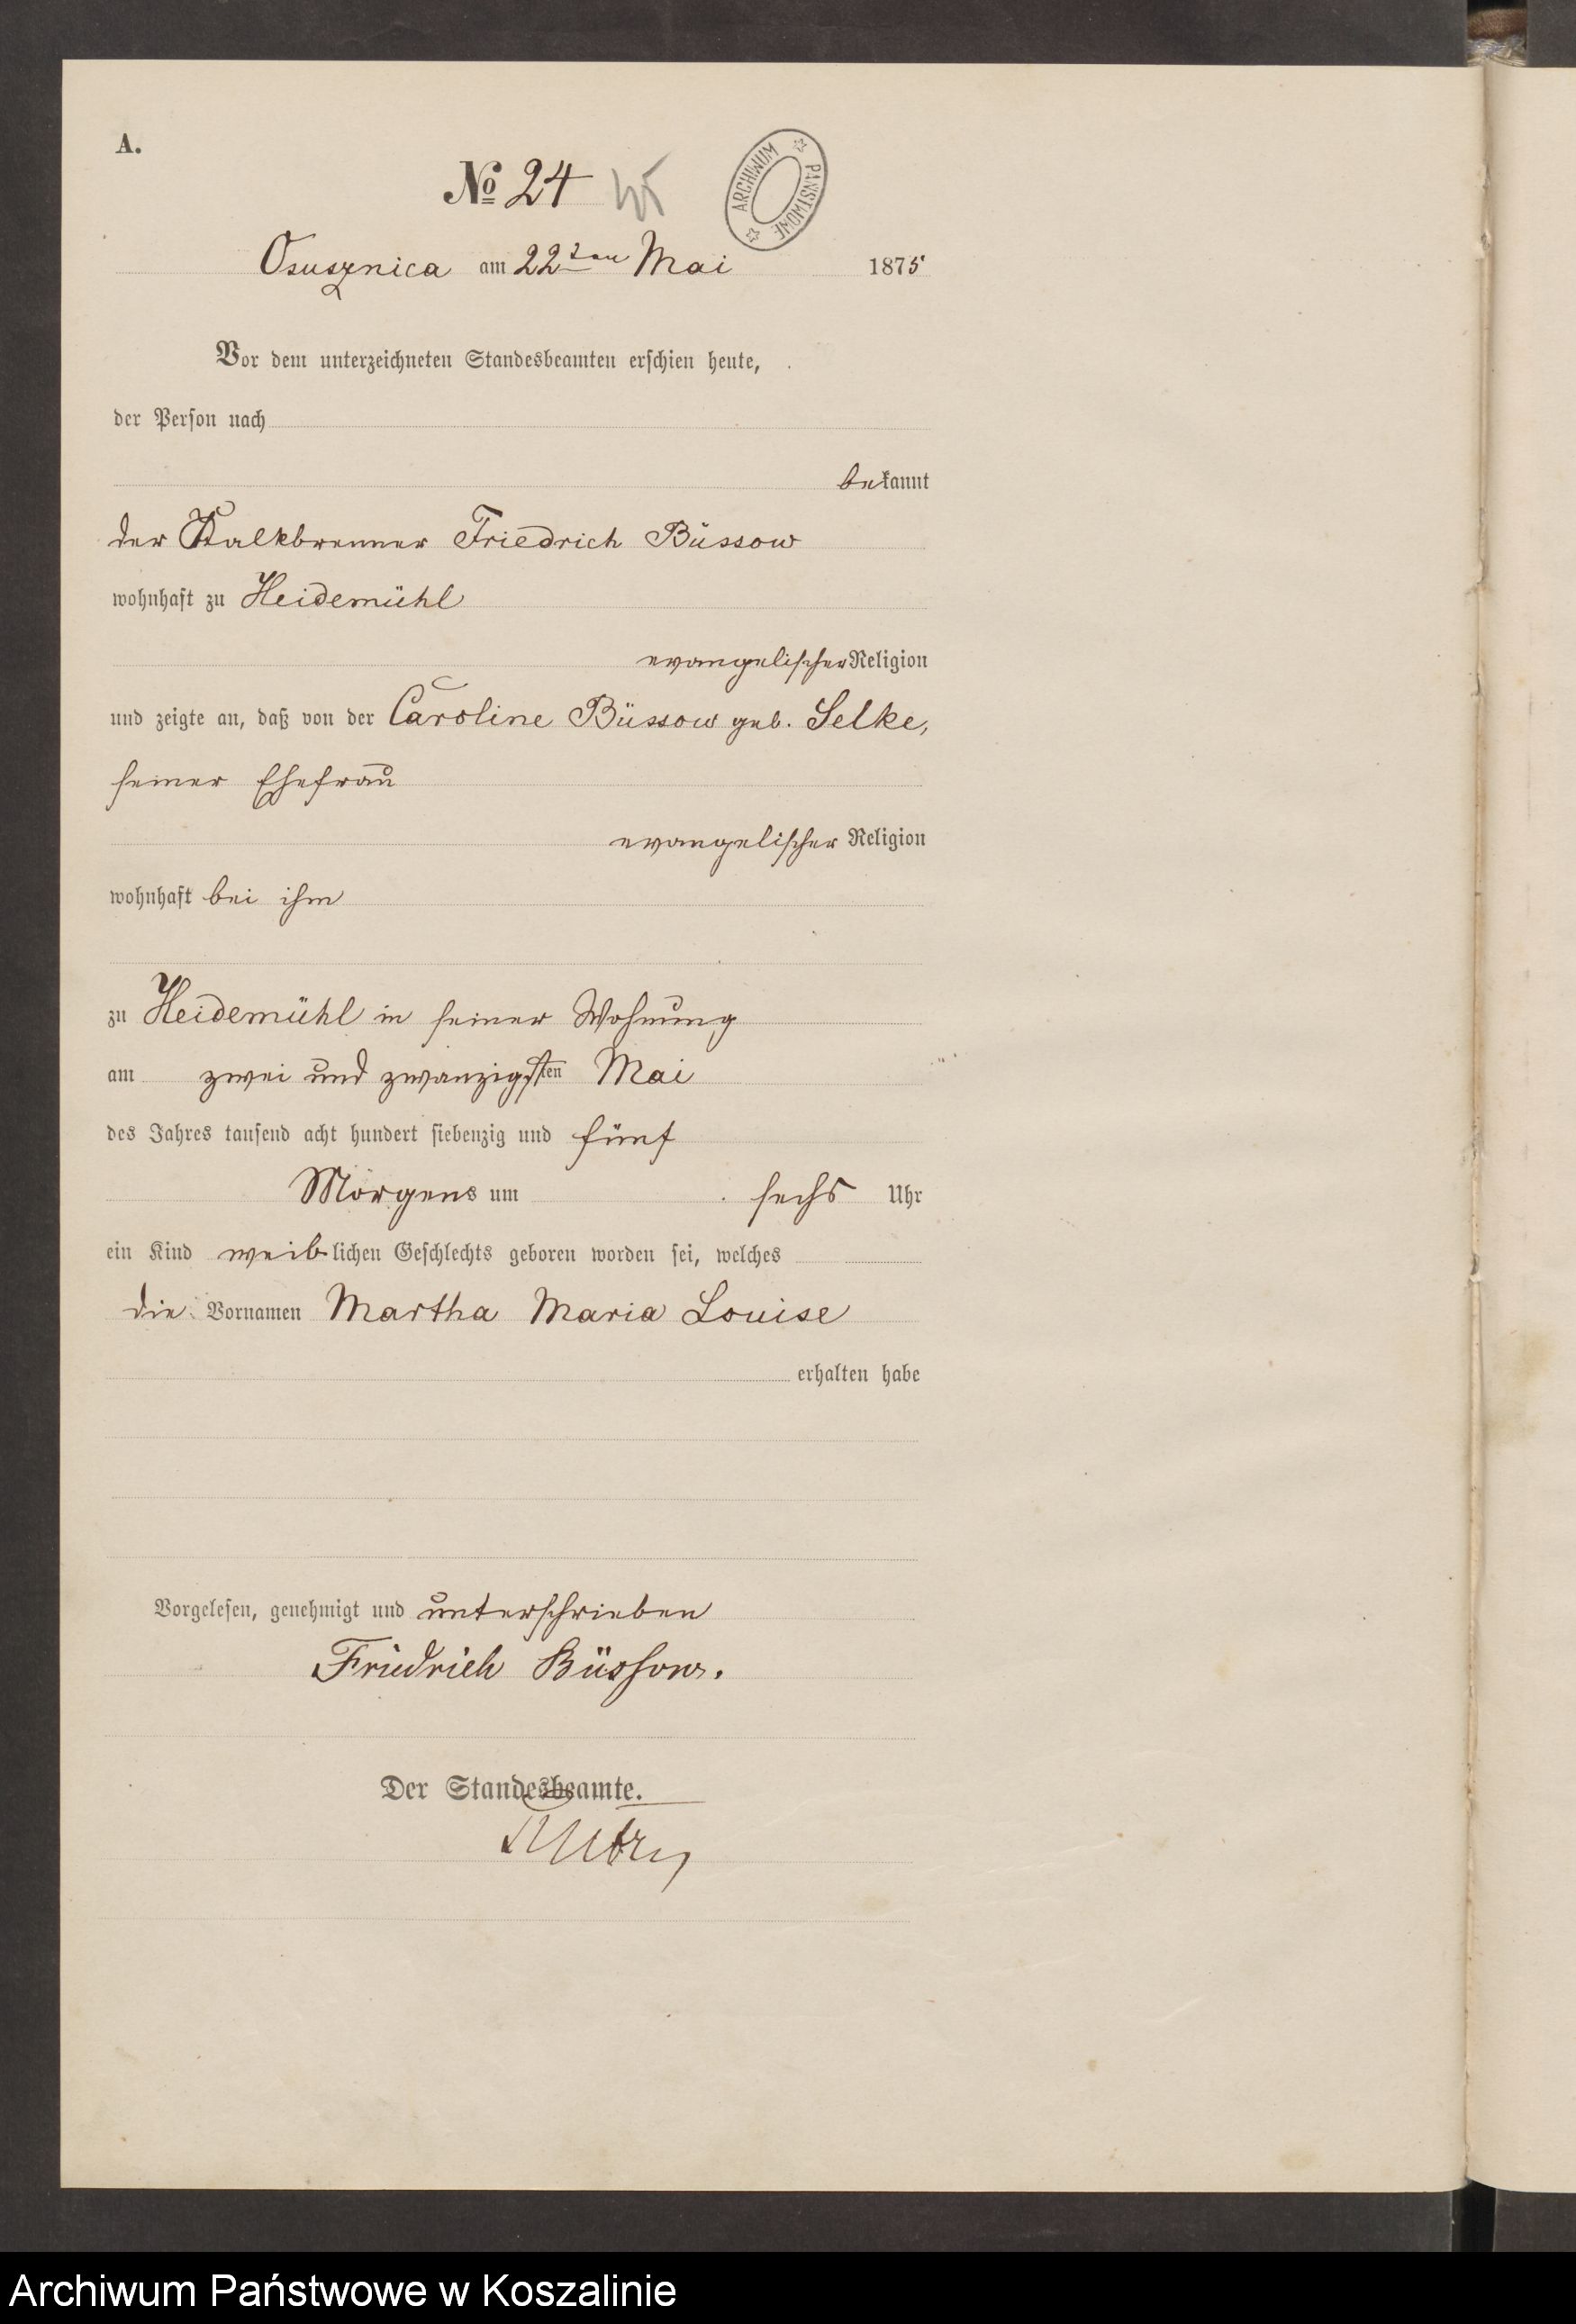 A.
No 24
ARCHIWUM PAŃSTWOWE
Osusznica am 22ten Mai 1875
Vor dem unterzeichneten Standesbeamten erschien heute,
der Person nach
bekannt
der Kalkbrenner Friedrich Büssow
wohnhaft zu Heidemühl
evangelischer Religion
und zeigte an, daß von der Caroline Büssow geb. Selke,
seiner Ehefrau
evangelischer Religion
wohnhaft bei ihm
zu Heidemühl in seiner Wohnung
am zwei und zwanzigsten Mai
des Jahres tausend acht hundert siebenzig und fünf
Morgens um sechs Uhr
ein Kind weiblichen Geschlechts geboren worden sei, welches
die Vornamen Martha Maria Louise
erhalten habe
Vorgelesen, genehmigt und unterschrieben
Friedrich Büssow.
Der Standesbeamte.
Archiwum Państwowe w Koszalinie